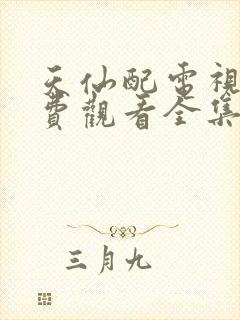 天仙配電視
費觀看全集
三月九